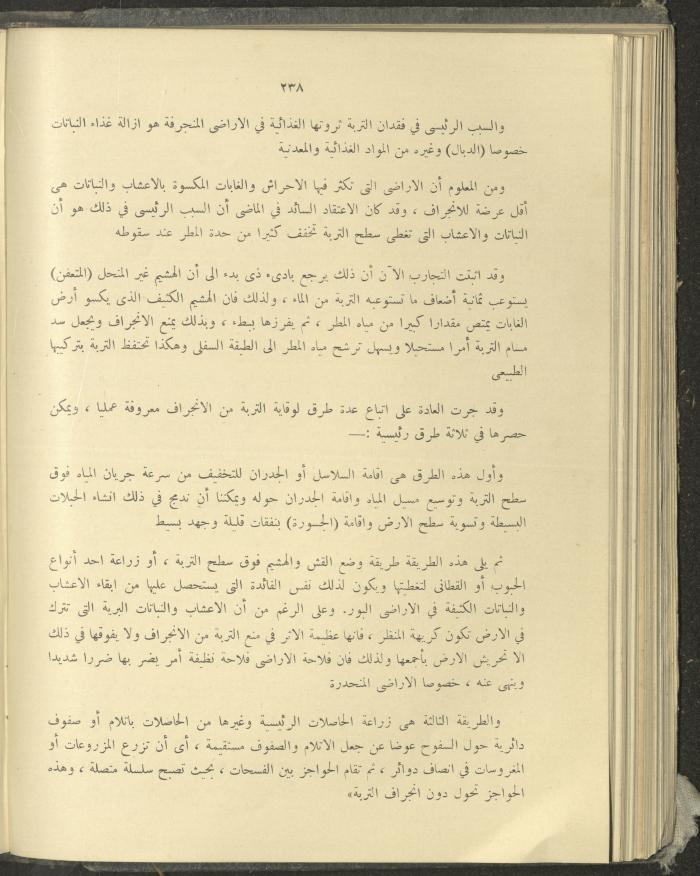 ٢٣٨
والسبب الرئيسى في فقدان التربة ثروتها الغذائية في الاراضى المنجرفة هو ازالة غذاء النباتات
خصوصا (الدبال) وغيره من المواد الغذائية والمعدنية
ومن المعلوم أن الاراضى التى تكثر فيها الاحراش والغابات المكسوة بالاعشاب والنباتات هى
أقل عرضة للانجراف ، وقد كان الاعتقاد السائد في الماضى أن السبب الرئيسى في ذلك هو أن
النباتات والاعشاب التى تغطى سطح التربة تخفف كثيرا من حدة المطر عند سقوطه
وقد اثبتت التجارب الآن أن ذلك يرجع بادىء ذى بدء الى أن الهشيم غير المنحل (المتعفن)
يستوعب ثمانية أضعاف ما تستوعبه التربة من الماء ، ولذلك فان الهشيم الكثيف الذى يكسو أرض
الغابات يمتص مقدارا كبيرا من مياه المطر ، ثم يفرزها ببطء ، وبذلك يمنع الانجراف ويجعل سد
مسام التربة أمرا مستحيلا ويسهل ترشح مياه المطر الى الطبقة السفلى وهكذا تحتفظ التربة بتركيبها
الطبيعى
وقد جرت العادة على اتباع عدة طرق لوقاية التربة من الانجراف معروفة عمليا ، ويمكن
حصرها في ثلاثة طرق رئيسية :—
وأول هذه الطرق هى اقامة السلاسل أو الجدران للتخفيف من سرعة جريان المياه فوق
سطح التربة وتوسيع مسيل المياه واقامة الجدران حوله ويمكننا أن ندمج في ذلك انشاء الحبلات
البسيطة وتسوية سطح الارض واقامة (الجسورة) بنفقات قليلة وجهد بسيط
ثم يلى هذه الطريقة طريقة وضع القش والهشيم فوق سطح التربة ، أو زراعة احد أنواع
الحبوب أو القطانى لتغطيتها ويكون لذلك نفس الفائدة التى يستحصل عليها من ابقاء الاعشاب
والنباتات الكثيفة في الاراضى البور. وعلى الرغم من أن الاعشاب والنباتات البرية التى تترك
في الارض تكون كريهة المنظر ، فانها عظيمة الاثر في منع التربة من الانجراف ولا يفوقها في ذلك
الا تحريش الارض بأجمعها ولذلك فان فلاحة الاراضى فلاحة نظيفة أمر يضر بها ضررا شديدا
وينهى عنه ، خصوصا الاراضى المنحدرة
والطريقة الثالثة هى زراعة الحاصلات الرئيسية وغيرها من الحاصلات باتلام أو صفوف
دائرية حول السفوح عوضا عن جعل الاتلام والصفوف مستقيمة ، أى أن تزرع المزروعات أو
المغروسات في انصاف دوائر ، ثم تقام الحواجز بين الفسحات ، بحيث تصبح سلسلة متصلة ، وهذه
الحواجز تحول دون انجراف التربة»